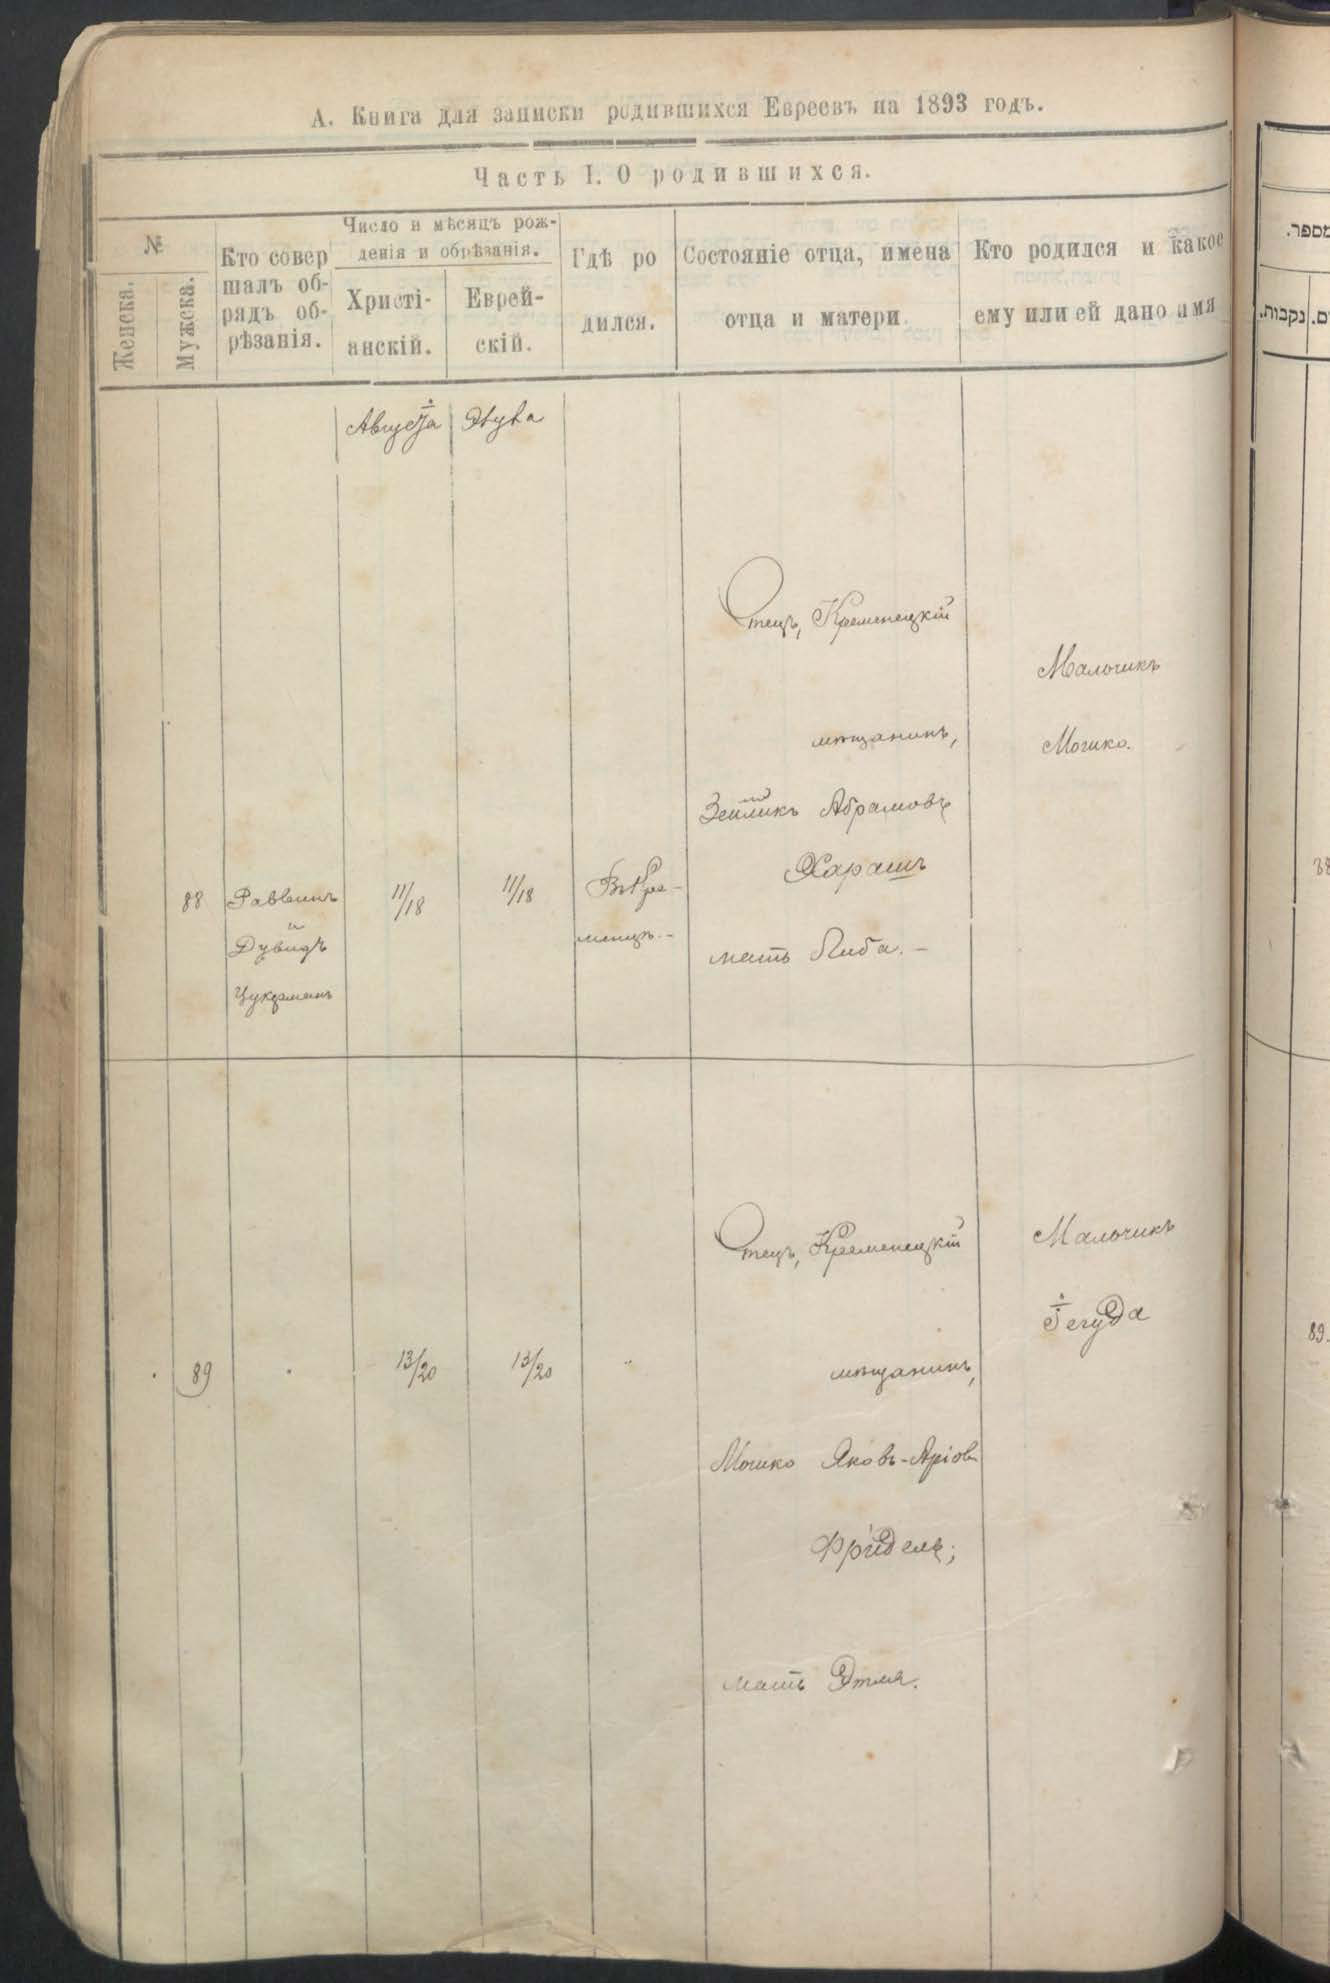 А. Книга для записки родившихся Евреевъ на 1893 годъ.
Часть I. О родившихся.
№
Женска.
Мужска.
Кто совер
шалъ об-
рядъ об-
рѣзанія.
Число и мѣсяцъ рож-
денія и обрѣзанія.
Христі-
анскій.
Еврей-
скій.
Гдѣ ро
дился.
Состояніе отца, имена
отца и матери.
Кто родился и какое
ему или ей дано имя
Августа
88
Раввинъ
Дувидъ
Цукерманъ
11/18
11/18
Въ Кре-
менцѣ.-
Отецъ, Кременецкій
мѣщанинъ,
Зейликъ Абрамовъ
Харашъ
мать Либа.-
Мальчикъ
Мошко.
89
13/20
13/20
"
Отецъ, Кременецкій
мѣщанинъ,
Мошко Яковъ-Аріов
Фридель;
мать Этля.
Мальчикъ
Іегуда
מספר.
נקבות.
38
89.